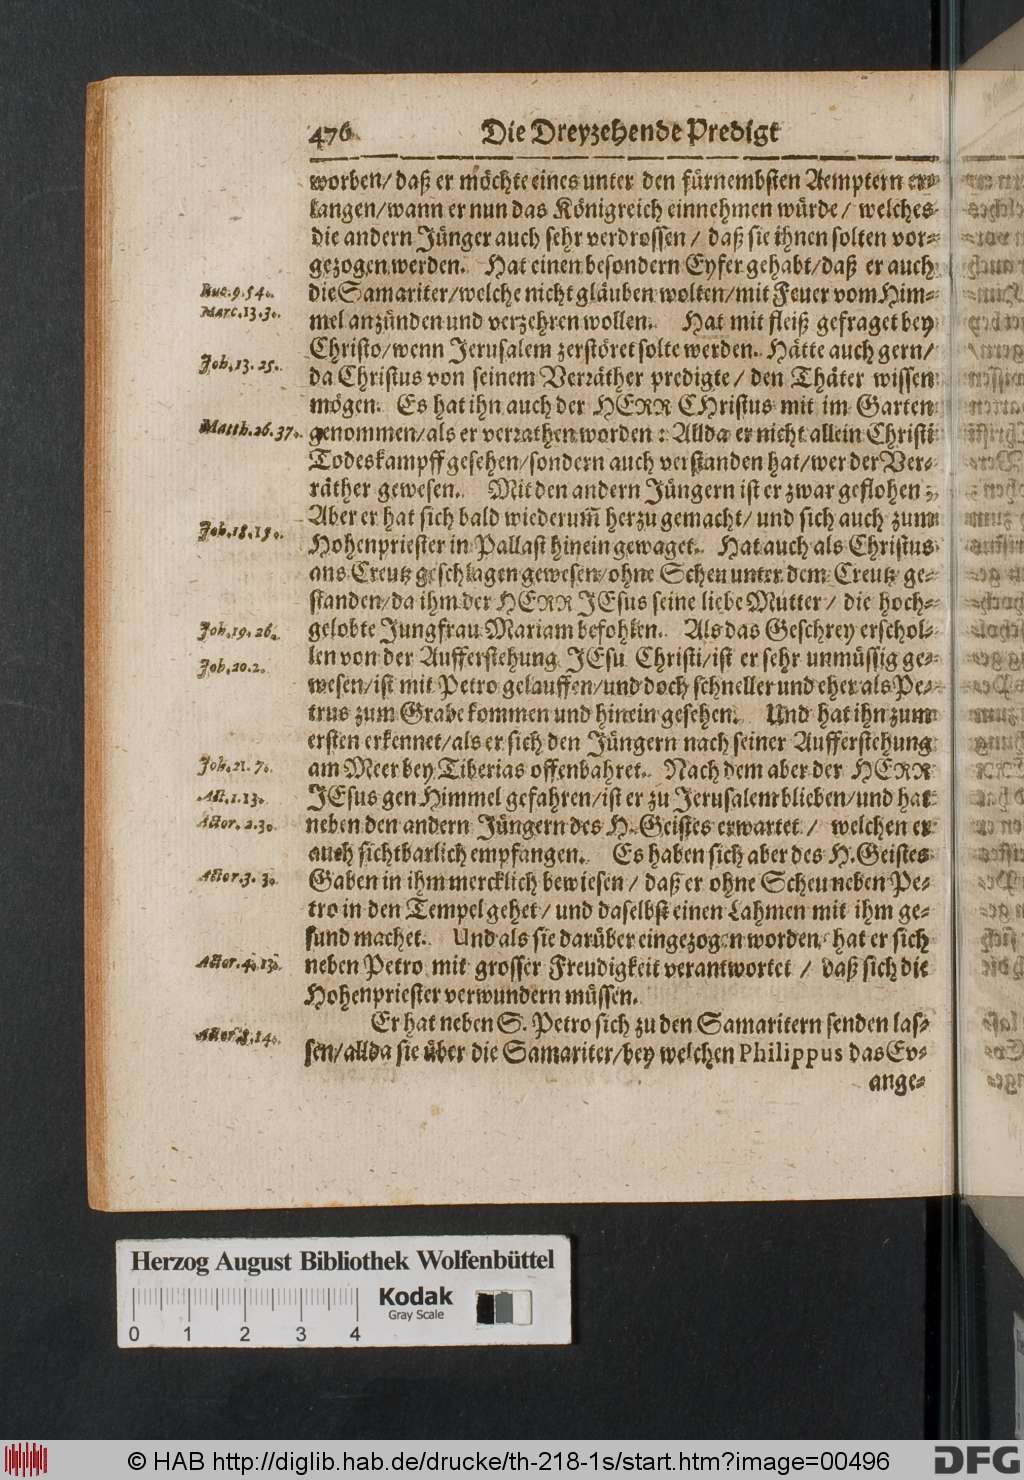 476 Die Dreyzehende Predigt
worben/ daß er möchte eines unter den fürnembsten Aemptern er-
langen/ wann er nun das Königreich einnehmen würde/ welches
die andern Jünger auch sehr verdrossen/ daß sie ihnen solten vor-
gezogen werden. Hat einen besondern Eyfer gehabt/ daß er auch
Luc. 9. 54.
die Samariter/ welche nicht gläuben wolten/ mit Feuer vom Him-
Marc. 13. 3.
mel anzünden und verzehren wollen. Hat mit fleiß gefraget bey
Christo/ wenn Jerusalem zerstöret solte werden. Hätte auch gern/
Joh. 13. 25.
da Christus von seinem Verräther predigte/ den Thäter wissen
mögen. Es hat ihn auch der HERR CHristus mit im Garten
Matth. 26. 37.
genommen/ als er verrathen worden: Allda er nicht allein Christi
Todeskampff gesehen/ sondern auch verstanden hat/ wer der Ver-
räther gewesen. Mit den andern Jüngern ist er zwar geflohen;
Joh. 18. 15.
Aber er hat sich bald wiederum̃ herzu gemacht/ und sich auch zum
Hohenpriester in Pallast hinein gewaget. Hat auch als Christus
ans Creutz geschlagen gewesen/ ohne Scheu unter dem Creutz ge-
standen/ da ihm der HERR JEsus seine liebe Mutter/ die hoch-
Joh. 19. 26.
gelobte Jungfrau Mariam befohlen. Als das Geschrey erschol-
Joh. 20. 2.
len von der Aufferstehung JEsu Christi/ ist er sehr unmüssig ge-
wesen/ ist mit Petro gelauffen/ und doch schneller und eher als Pe-
trus zum Grabe kommen und hinein gesehen. Und hat ihn zum
ersten erkennet/ als er sich den Jüngern nach seiner Aufferstehung
Joh. 21. 7.
am Meer bey Tiberias offenbahret. Nach dem aber der HERR
Act. 1. 13.
JEsus gen Himmel gefahren/ ist er zu Jerusalem blieben/ und hat
Actor. 2. 3.
neben den andern Jüngern des H. Geistes erwartet/ welchen er
auch sichtbarlich empfangen. Es haben sich aber des H. Geistes
Actor. 3. 3.
Gaben in ihm mercklich bewiesen/ daß er ohne Scheu neben Pe-
tro in den Tempel gehet/ und daselbst einen Lahmen mit ihm ge-
sund machet. Und als sie darüber eingezogen worden, hat er sich
Actor. 4. 13.
neben Petro mit grosser Freudigkeit verantwortet/ daß sich die
Hohenpriester verwundern müssen.
Er hat neben S. Petro sich zu den Samaritern senden las-
Actor. 8. 14.
sen/ allda sie über die Samariter/ bey welchen Philippus das Ev-
ange-
Herzog August Bibliothek Wolfenbüttel
Kodak
Gray Scale
0 1 2 3 4
© HAB http://diglib.hab.de/drucke/th-218-1s/start.htm?image=00496
DFG